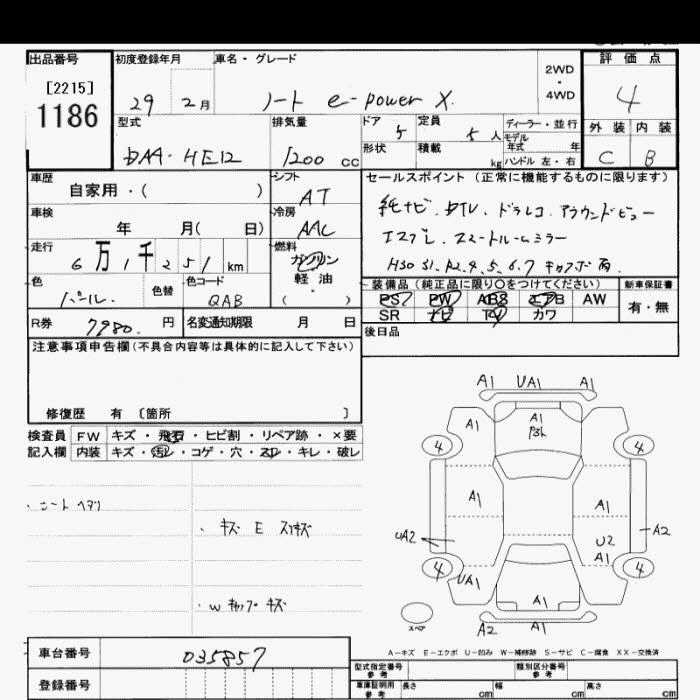 出品番号 初度登録年月 車名・グレード 評価点
[2215]
1186
29 2月 ノート e-power X. 2WD・4WD 4
型式 排気量 ドア 定員 ディーラー・並行 外装 内装
DAA-HE12 1200 cc 5 5人 モデル年式 年 C B
形状 積載 kg ハンドル 左・右
車歴 シフト セールスポイント (正常に機能するものに限ります)
自家用・( ) AT
純ナビ. フルセグTV. ドラレコ. アラウンドビュー
車検 冷房
年 月( 日) AAC
エマブレ. スマートルームミラー
走行 燃料
6万1千251 km ガソリン
軽油・
( )
色 色替 色コード 装備品 (純正品に限り○をつけてください) 新車保証書
パール. QAB PS PW ABS エアB AW 有・無
R券 7980. 円 名変通知期限 月 日 SR ナビ TV カワ
注意事項申告欄(不具合内容等は具体的に記入して下さい) 後日品
修復歴 有 〔箇所 〕
検査員 FW キズ・飛石・ヒビ割・リペア跡・×要
記入欄 内装 キズ・汚レ・コゲ・穴・スレ・キレ・破レ
・シート ヘタリ
・キズ E スリキズ
・W キャップ キズ
A1 UA1 A1
A1 A1
4 4
A1 A1
UA2 A2
U2
A1
4 4
UA1
A1
スペア A2 A1
A−キズ E−エクボ U−凹み W−補修跡 S−サビ C−腐食 XX−交換済
車台番号 035857
型式指定番号 参考 類別区分番号 参考
登録番号
車庫証明用 参考 長さ cm 幅 cm 高さ cm